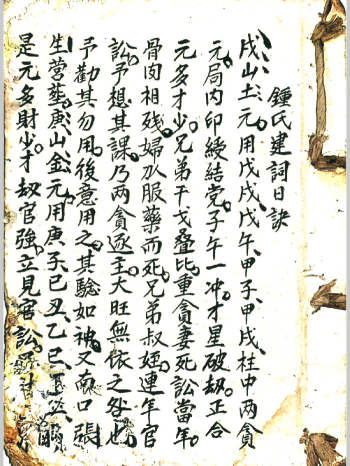 鍾氏建詞日訣
戌山土元用戊戌戊午甲子甲戌柱中兩貪
元局内印綬結党子午一冲才星破劫正合
元多才少兄弟干戈叠比重貪妻死訟當年
骨肉相残婦以服藥而死兄弟叔姪連年官
訟予想其課乃兩貪逐主大旺無依之咎也
予勸其勿用後意用之其驗如神又南口張
生营塟庚山金元用庚子己丑乙巳
是元多財少才劫官強立見官訟